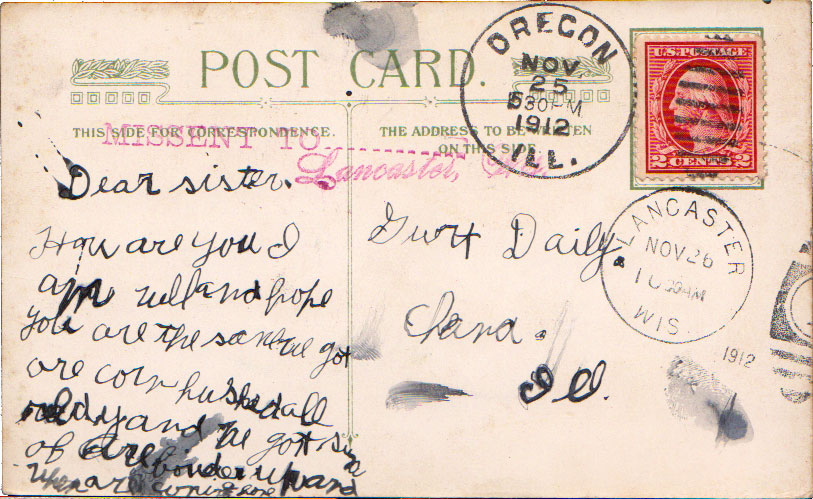 POST CARD.
THIS SIDE FOR CORRESPONDENCE.
THE ADDRESS TO BE WRITTEN
ON THIS SIDE
MISSENT TO
Lancaster,
OREGON
NOV
25
530PM
1912
ILL.
U.S. POSTAGE
2 CENTS 2
LANCASTER
NOV 26
AM
WIS.
1912
Dear sister.
How are you I
am well and hope
you are the same we got
are corn husked all
redy and we got
of are up and
when are coming home
Daily
Chana.
Ill.